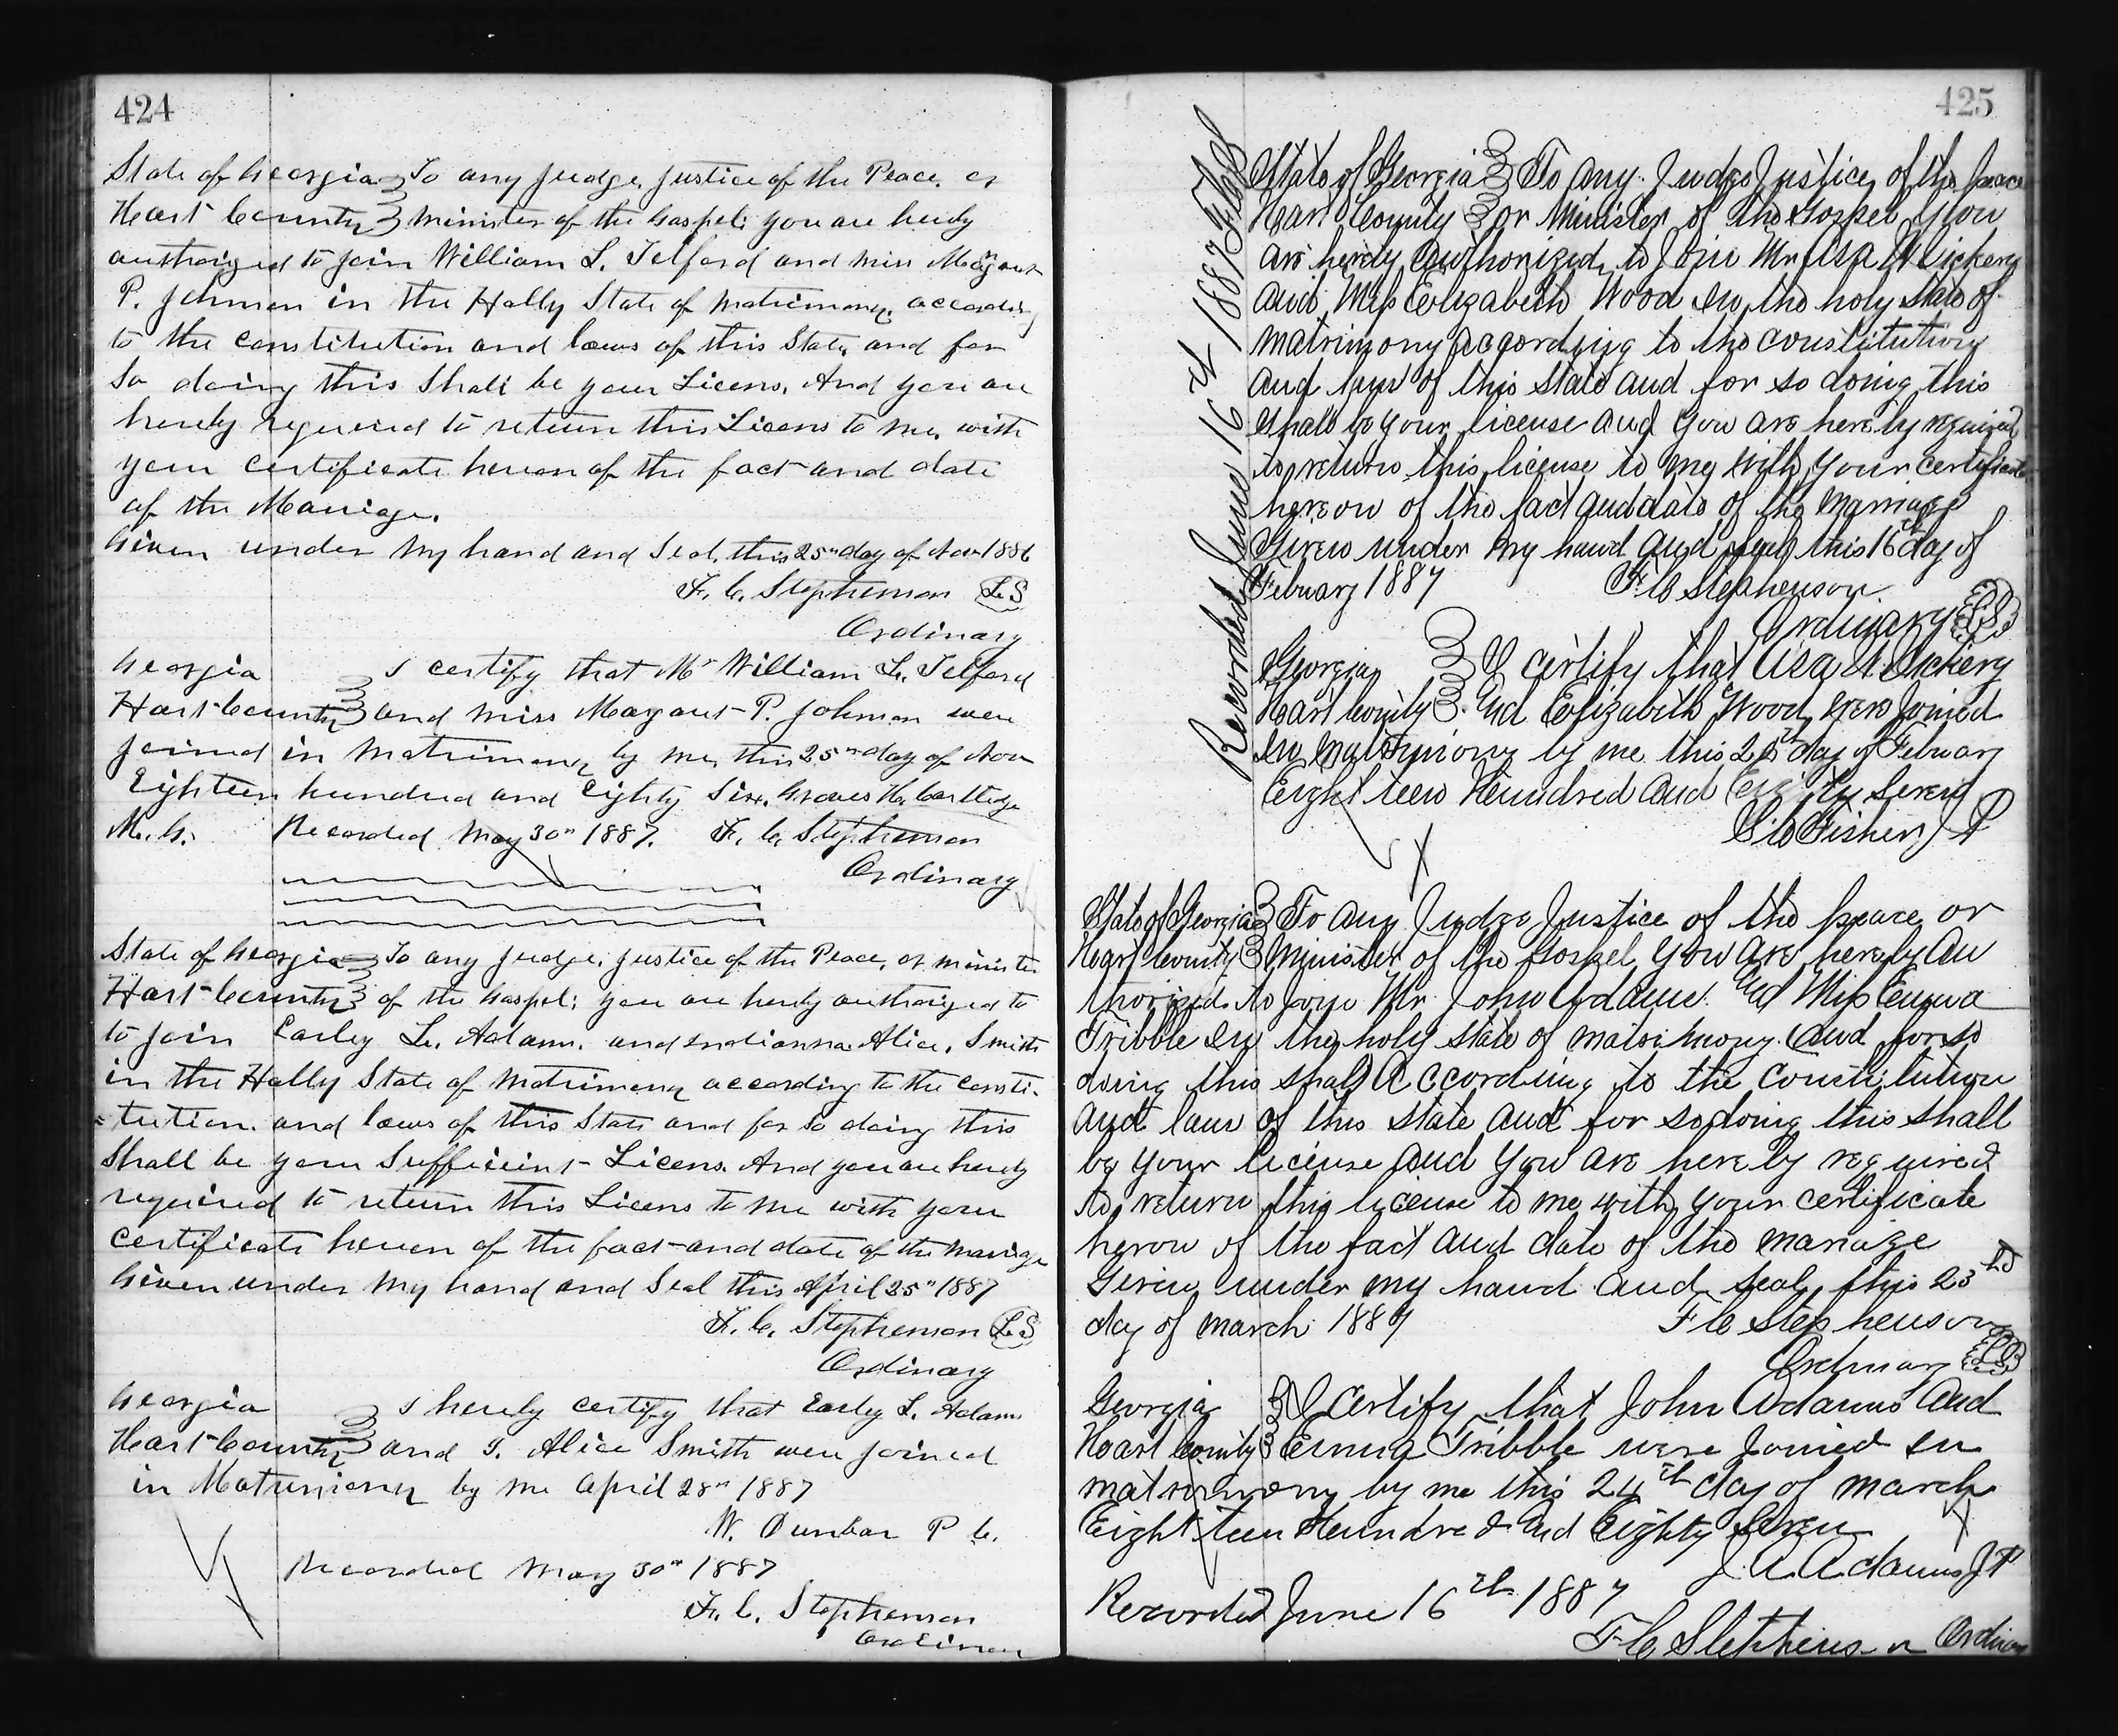 424
State of Georgia To any Judge, Justice of the Peace, or
Hart County minister of the Gospel; you are hereby
authorized to join William L. Telford and miss Margaret
P. Johnson in the Holly State of matrimony, according
to the constitution and laws of this State, and for
So doing this Shall be your Licens. And you are
hereby required to return this Licens to me, with
your certificate hereon of the fact and date
of the Marriage.
Given under My hand and Seal, this 25th day of Nov 1886
F. C. Stephenson L.S
Ordinary
Georgia I certify that Mr William L. Telford
Hart County and miss Margaret P. Johnson were
joined in Matrimony by me, this 25th day of Nov
Eighteen hundred and Eighty Six. Groves H. Cartledge
M. G. Recorded May 30th 1887. F. C. Stephenson
Ordinary
State of Georgia To any Judge, Justice of the Peace, or minister
Hart County of the Gospel; you are hereby authorized to
to join Earley L. Adams. and Indianna Alice. Smith
in the Holly State of Matrimony according to the consti-
=tution. and laws of this State and for So doing this
Shall be your Sufficient Licens. And you are hereby
required to return this Licens to me with your
certificate hereon of the fact and date of the Marriage
Given under My hand and Seal this April 25th 1887
F. C. Stephenson L.S
Ordinary
Georgia I hereby certify that Earley L. Adams
Hart County and I. Alice Smith were joined
in Matrimony by me April 28th 1887
W. Dunbar P C.
Recorded May 30th 1887
F. C. Stephenson
Ordinary
425
Recorded June 16th 1887
State of Georgia To any Judge Justice, of the peace
Hart County or Minister of the Gospel, you
are hereby authorized, to Join Mr. Asa
and, Miss Elizabeth Wood In, the holy state of
matrimony according to the constitution
and laws of this State and for so doing, this
shall be your license and you are hereby required
to, return this, license to me with, your certificate
hereon of the fact and date of the Marriage
Given under My hand and seal this 16th day of
Febuary 1887 F C Stephenson
Ordinary L S
Georgia I certify that Asa
Hart County and Elizabeth Wood, were Joined
In matrimony by me this day of Febuary
Eighteen Hundred and Eighty Seven
Fisher, J P
State of Georgia To any Judge Justice of the peace or
Hart County Minister of the Gospel you are hereby au
thorized to Join Mr. John Adams and Miss Emma
Tribble In the holy state of matrimony. and for so
doing this shall According to the Constitution
and laws of this state and for so doing this shall
be your license and you are hereby required
to, return this license to me with, your certificate
heron of the fact and date of the mariage
Given under my hand and seal, this 23rd
day of march 1887 F C Stephenson
Ordinary L S
Georgia I certify that John Adams and
Hart County Emma Tribble were Joined In
matrimony by me this 24th day of march
Eighteen Hundred and Eighty Seven
J. A. Adams J P
Recorded June 16th 1887
F C Stephenson Ordinary